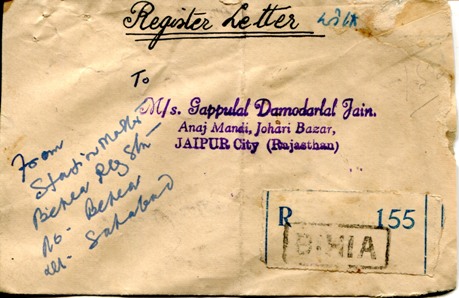 Register Letter
To
M/s. Gappulal Damodarlal Jain.
Anaj Mandi, Johari Bazar,
JAIPUR City (Rajasthan)
From
Station Master
Behea Rly Stn
PO- Behea
Sahabad
R 155
BIHIA